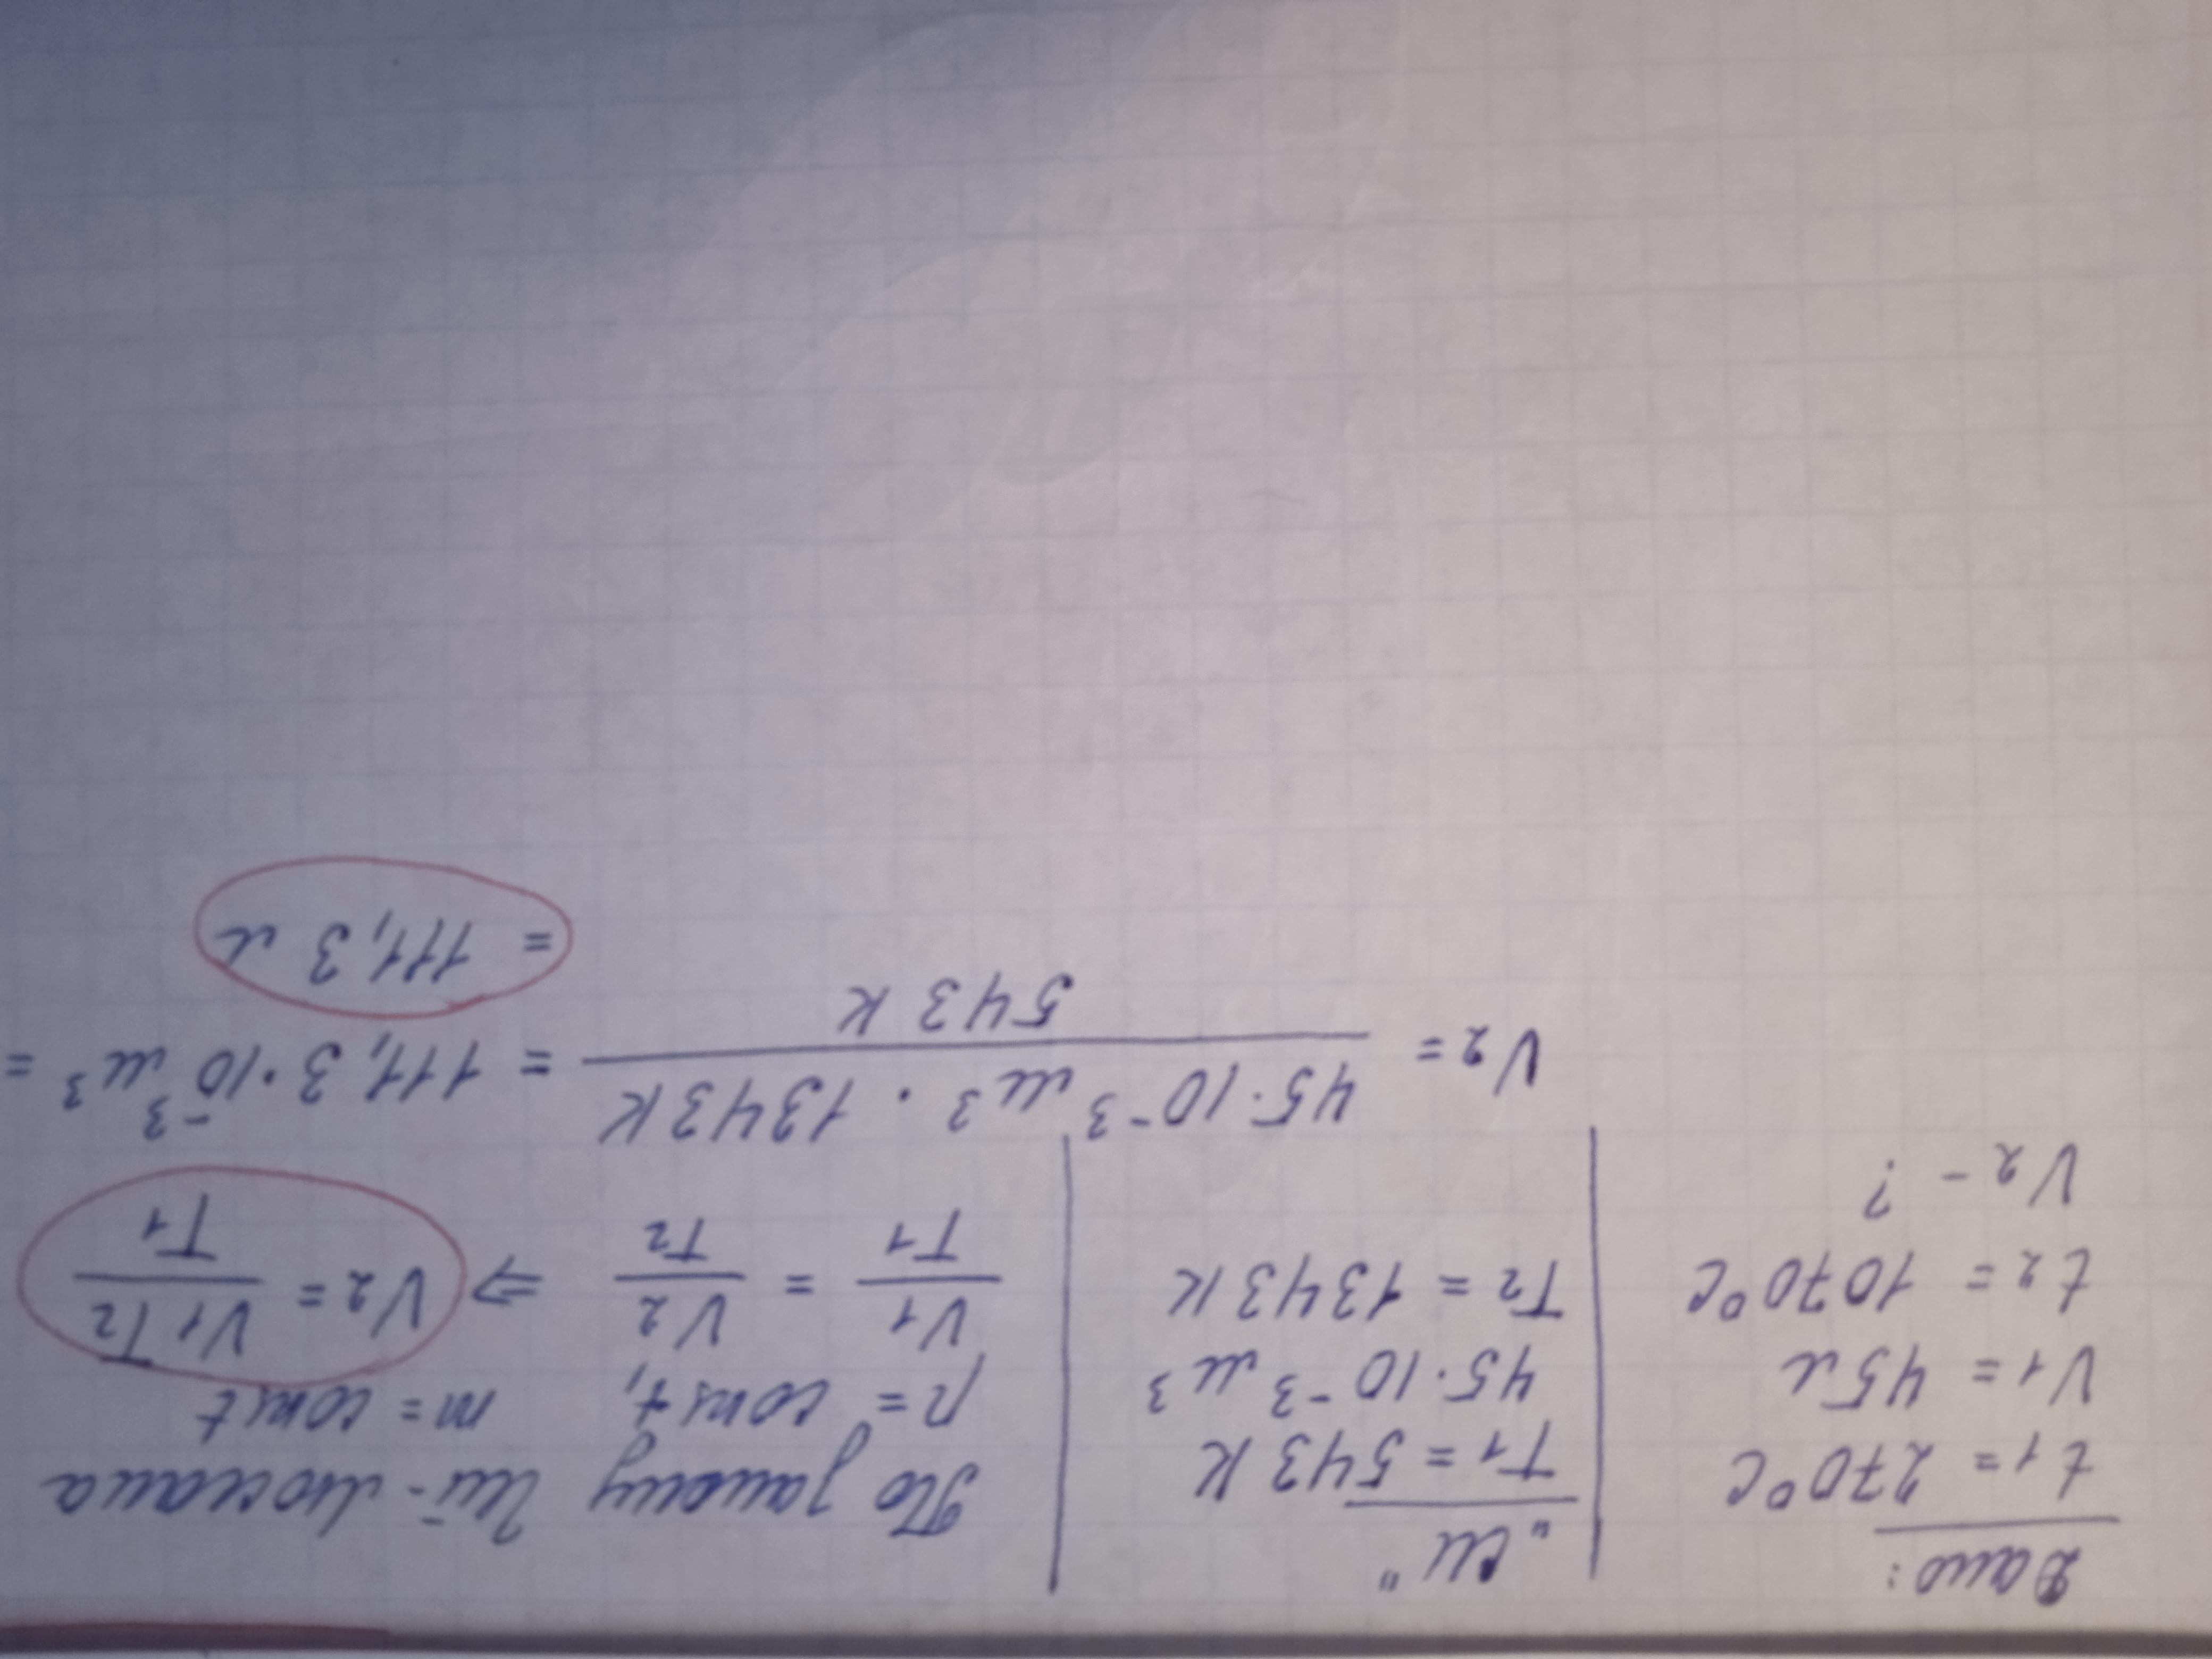 Дано:
t1 = 270°C
V1 = 45л
t2 = 1070°C
V2 - ?
„СИ"
T1 = 543 K
45·10⁻³ м³
T2 = 1343 K
По закону Гей-Люссака
p = const, m = const
V1/T1 = V2/T2 ⇒ V2 = V1T2/T1
V2 = 45·10⁻³ м³ · 1343 K / 543 K = 111,3·10⁻³ м³ =
= 111,3 л